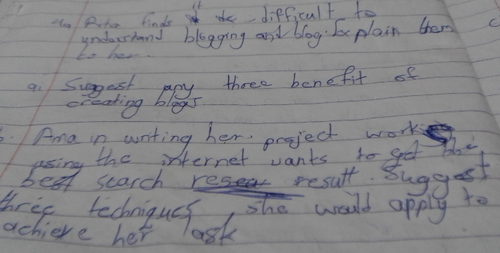 4a Rita finds it difficult to
understand blogging and blog. Explain them
to her.
a. Suggest any three benefit of
creating blogs
b. Ama in writing her project work
using the internet wants to get the
best search result. Suggest
three techniques she would apply to
achieve her task